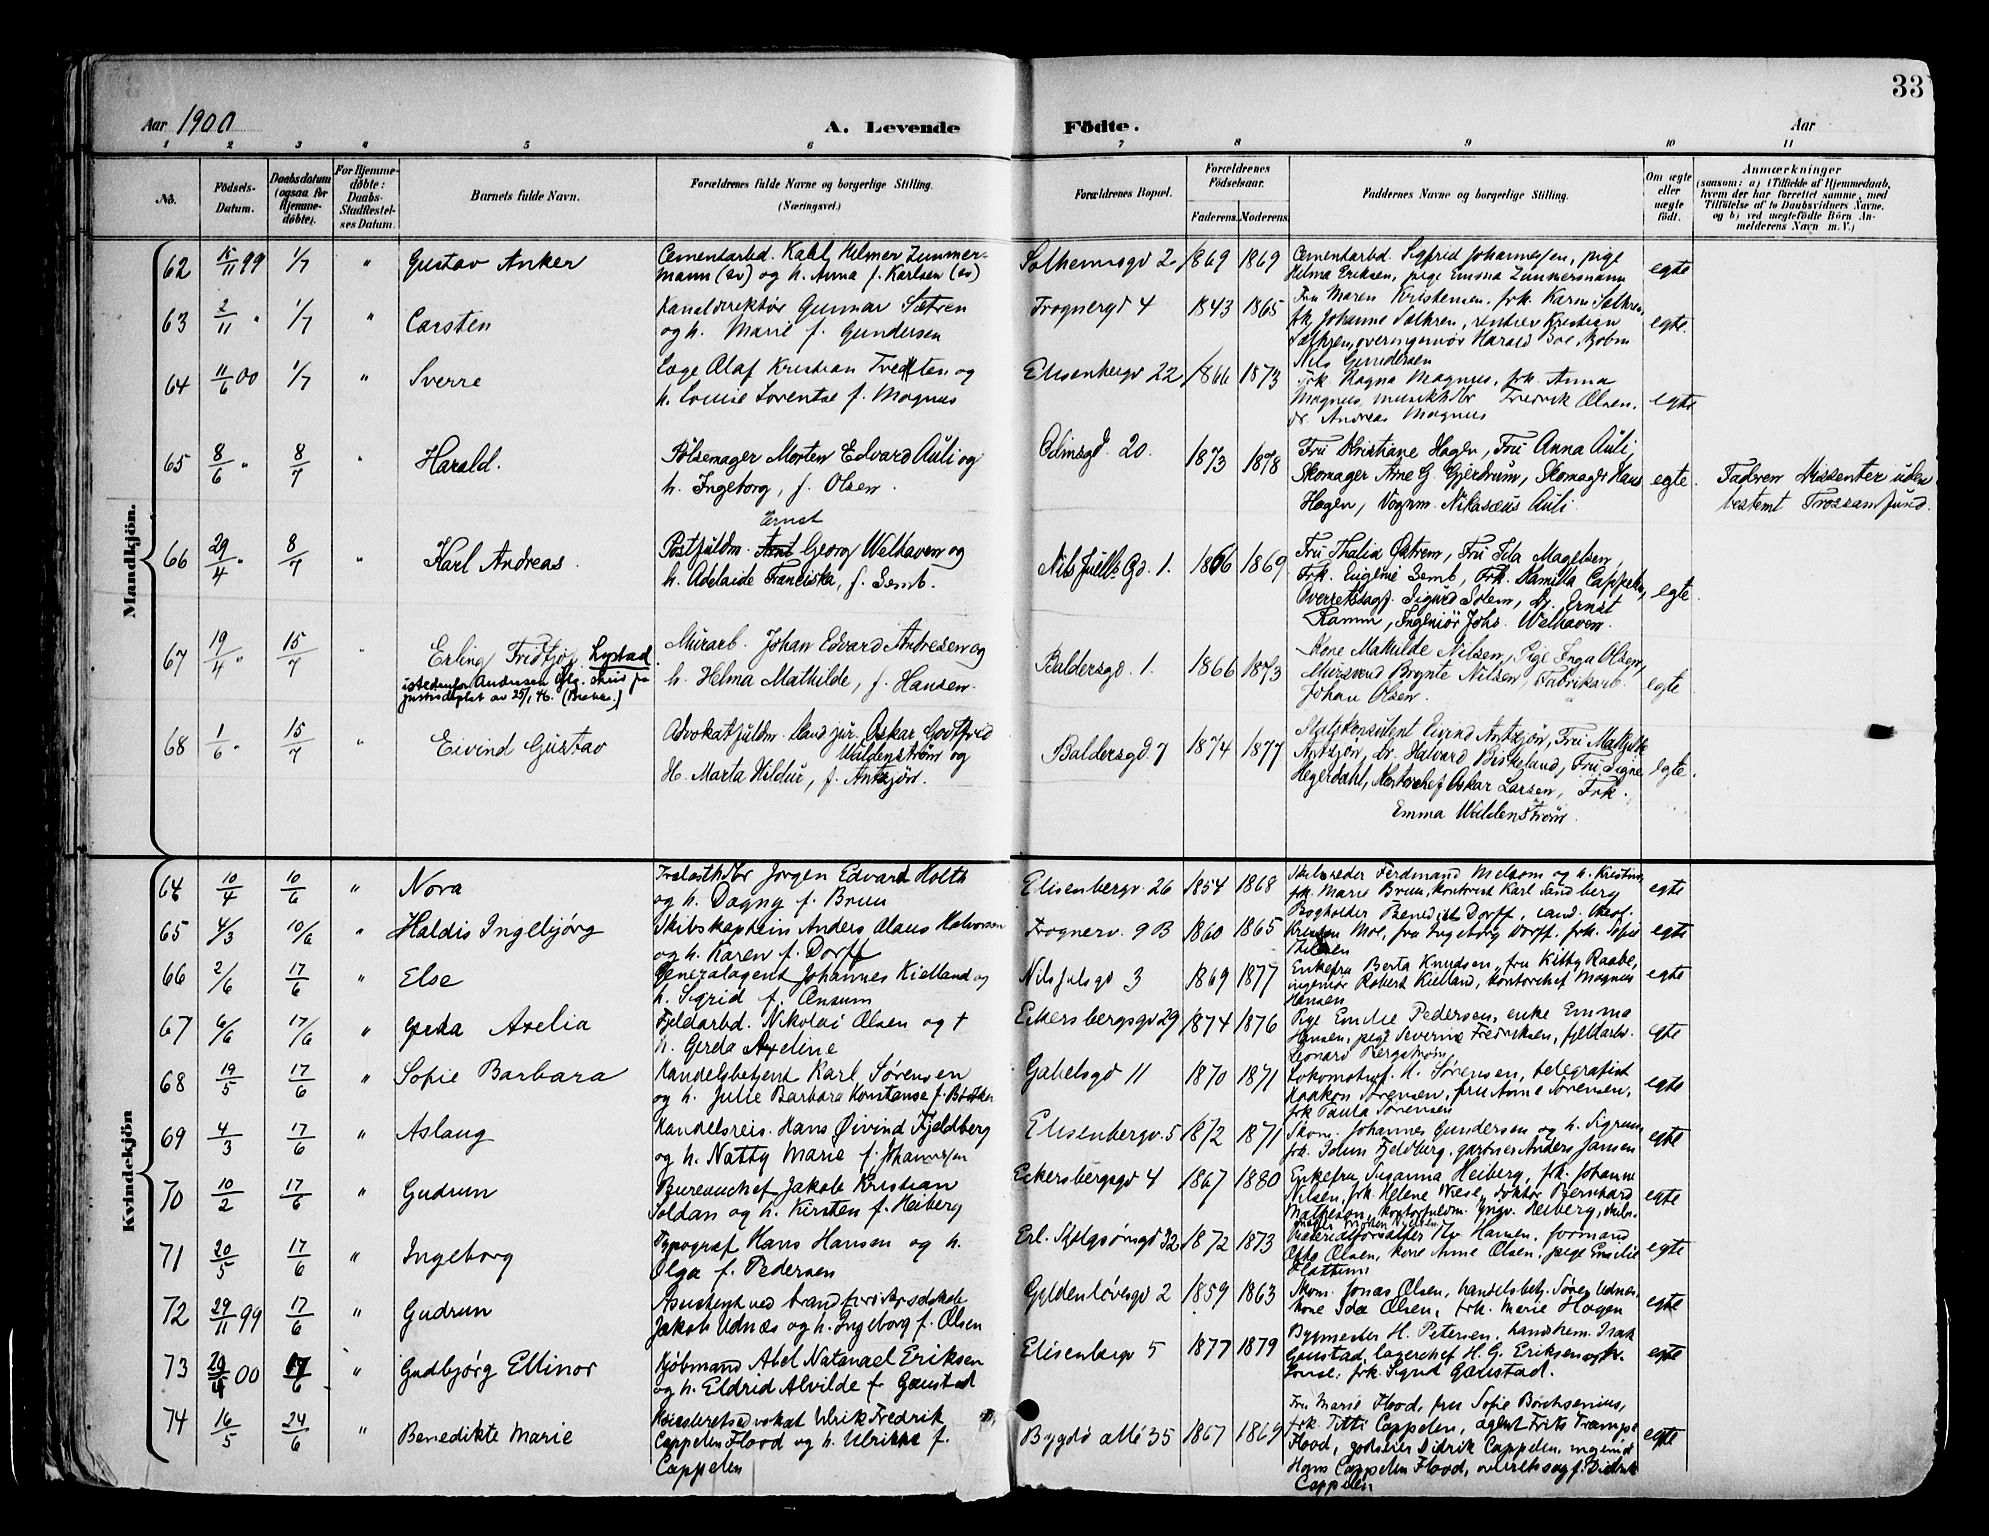 33
Aar 1900
A. Levende Fødte.
Aar
1 2 3 4 5 6 7 8 9 10 11
No.
Fødsels-Datum.
Daabsdatum (ogsaa for Hjemme-døbte).
For Hjemme-døbte: Daabs-Stadfæstel-ses Datum.
Barnets fulde Navn.
Forældrenes fulde Navne og borgerlige Stilling. (Næringsvei.)
Forældrenes Bopæl.
Forældrenes Fødselsaar.
Faderens. Moderens.
Faddernes Navne og borgerlige Stilling.
Om ægte eller uægte født.
Anmærkninger
(saasom: a) i Tilfælde af Hjemmedaab,
hvem der har forrettet samme, med
Tilføielse af to Daabsvidners Navne.
og b) ved uægtefødte Børn An-
melderens Navn m. V.)
Mandkjøn.
62 15/11 99 1/7 " Gustav Anker
Cementarbd. Karl Helmer Zimmer-
mann (sv) og h. Anna f. Karlsen (sv)
Solheimsgd 2 1869 1869
Cementarbd. Sigfrid Johannessen, pige
Helma Eriksen, pige Emma Zimmermann
egte
63 2/11 " 1/7 " Carsten
Kanaldirektør Gunnar Sætren
og h. Marie f. Gundersen
Frognergd 4 1843 1865
Fru Maren Kristensen, frk. Karen Sætren,
frk Johanne Sætren, rentier Kristian
Sætren, overingeniør Harald Boe,
Nils Gundersen
egte.
64 11/6 00 1/7 " Sverre
Læge Olaf Kristian Tvedten og
h. Louise Lorentse f. Magnus
Elisenbergv 22 1866 1873
Frk. Ragna Magnus, frk. Anna
Magnus, musikhdlr Fredrik Olsen,
dr Andreas Magnus
egte
65 8/6 " 8/7 " Harald.
Pølsemager Morten Edvard Auli og
h. Ingeborg, f. Olsen.
Odinsgd. 20. 1873 1878
Fru Kristiane Hagen, Fru Anna Auli,
Skomager Arne G. Gjerdrum, Skomager Hans
Hagen, Vognm. Nikasæus Auli.
egte.
Faderen Dissenter uden
bestemt Trossamfund.
66 29/4 " 8/7 " Karl Andreas.
Ernst
Postfuldm. Arnt Georg Welhaven og
h. Adelaide Franciska, f. Semb.
Nils Juells Gd. 1. 1866 1869
Fru Thalia Østrem, Fru Ida Magelsen,
Frk. Eugenie Semb, Frk. Kamilla Cappelen,
Overretssagf. Sigurd Solem, Dr. Ernst
Ramm, Ingeniør Johs. Welhaven.
egte.
67 19/4 " 15/7 " Erling Fridtjof. Lystad.
istedenfor Andresen iflg. skriv fra
justisdeptet av 25/1 46.
Murarb. Johan Edvard Andresen og
h. Helma Mathilde, f. Hansen.
Baldersgd. 1. 1866 1873
Kone Mathilde Nilsen, Pige Inga Olsen,
Mursvend Brynte Nilsen, Fabrikarb.
Johan Olsen.
egte.
68 1/6 " 15/7 " Eivind Gustav
Advokatfuldm. Cand jur. Oskar Gottfrid
Waldenstrøm og
H. Marta Hildur, f. Antzjøn.
Baldersgd 7 1874 1877
Statskonsulent Eivind Antzjøn, Fru Mathilde
Antzjøn, Dr. Halvard Birkeland, Fru Signe
Hegerdahl, Kontorchef Oskar Larsen, Frk.
Emma Waldenstrøm.
egte.
Kvindekjøn
64 10/4 10/6 " Nora
Trælasthdlr Jørgen Edvard Holth
og h. Dagny f. Bruu
Elisenbergv. 26 1854 1868
Skibsreder Ferdinand Melsom og h. Kristine,
frk. Marie Bruu, kontorist Karl Sandberg
egte
65 4/3 10/6 " Haldis Ingebjørg
Skibskaptein Anders Olaus Halvorsen
og h. Karen f. Dorff
Frognerv. 9 B 1860 1865
Bogholder Benedict Dorff, cand. theol.
Kristen Moe, fru Ingeborg Dorff, frk. Sofie
egte
66 2/6 17/6 " Else
Generalagent Johannes Kielland og
h. Sigrid f. Onsum
Nils Julsgd 3 1869 1877
Enkefru Berta Knudsen, fru Kitty Raabe,
ingeniør Robert Kielland, kontorchef Magnus
Hansen
egte
67 6/6 17/6 " Gerda Axelia
Fjeldarbd. Nikolai Olsen og †
h. Gerda Axeline
Eckersbergsgd 29 1874 1876
Pige Emilie Pedersen, enke Emma
Hansen, pige Severine Fredriksen, fjeldarb.
Leonard Bergstrøm
egte
68 19/5 17/6 " Sofie Barbara
Handelsbetjent Karl Sørensen
og h. Julie Barbara Konstanse f. Bødtker
Gabelsgd 11 1870 1871
Lokomotivf. H. Sørensen, telegrafist
Haakon Sørensen, fru Anne Sørensen,
frk Paula Sørensen
egte
69 4/3 17/6 " Aslaug
Handelsreis. Hans Øivind Fjeldberg
og h. Natty Marie f. Johannesen
Elisenbergv. 5 1872 1871
Skom. Johannes Gundersen og h. Sigrun,
frk. Idun Fjeldberg, gartner Anders Jansen
egte
70 10/2 17/6 " Gudrun
Bureauchef Jakob Kristian
Soldan og h. Kirsten f. Heiberg
Eckersbergsgd 4 1867 1880
Enkefru Susanna Heiberg, frk. Johanne
Nilsen, frk. Helene Wiese, doktor Bernhard
Matheson, kontorfuldm. Yngv. Heiberg,
egte
71 20/5 17/6 " Ingeborg
Typograf Hans Hansen og h.
Olga f. Pedersen
Erl. Skjalgsønsgd 32 1872 1873
Materialforvalter Hansen, formand
Otto Olsen, kone Anne Olsen, pige Emilie
Flattum
egte
72 29/11 99 17/6 " Gudrun
Assistent ved brandforsikrselskab
Jakob Udnæs og h. Ingeborg f. Olsen
Gyldenløvesgd 2 1859 1863
Skom. Jonas Olsen, handelsbetj. Søren Udnæs,
kone Ida Olsen, frk. Marie Hagen
egte
73 20/4 00 17/6 " Gudbjørg Ellinor
Kjøbmand Abel Natanael Eriksen
og h. Eldrid Alvilde f. Gaustad
Elisenbergv 5 1877 1879
Bygmester H. Petersen, handrhem. Isak
Gaustad, lagerchef H. G. Eriksen og h.
frk. Sigrid Gaustad.
egte
74 16/5 24/6 " Benedikte Marie
Høiesteretsadvokat Ulrik Fredrik
Cappelen Flood og h. Ulrikke f.
Cappelen
Bygdø allé 35 1867 1869
Fru Marie Flood, fru Sofie Borchsenius,
frk. Titti Cappelen, agent Frits Trampe
Flood, godseier Didrik Cappelen, ingeniør
Hans Cappelen Flood, overretssagf. Didrik
Cappelen
egte